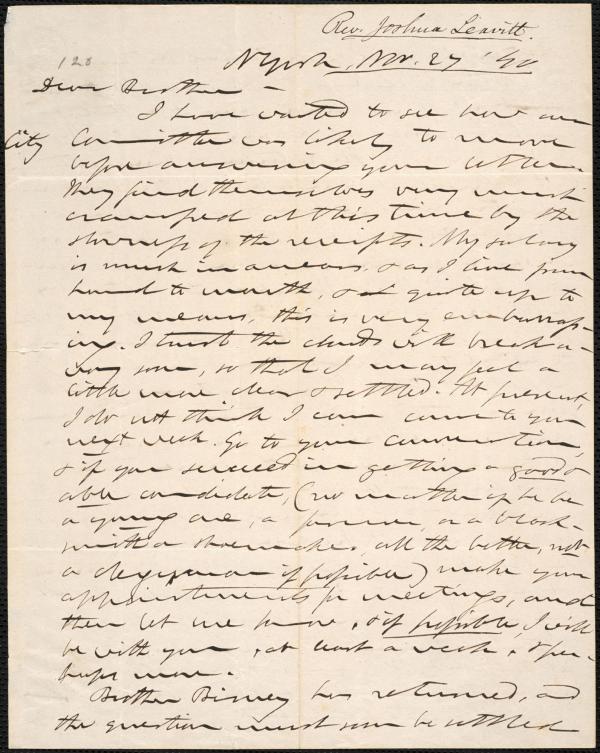 Rev. Joshua Leavitt.
128
N York, Nov. 27 '40
Dear Brother —
I have waited to see how our
City Committee was likely to move
before answering your letter.
They find themselves very much
cramped at this time by the
slowness of the receipts. My salary
is much in arrears, & as I live from
hand to mouth, & quite up to
my means, this is very embarrass-
ing. I trust the clouds will break a-
way soon, so that I may feel a
little more clear & settled. At present,
I do not think I can come to you
next week. Go to your convention,
& if you succeed in getting a good &
able candidate, (no matter if he be
a young one, a farmer, or a black-
smith or shoemaker, all the better, not
a clergyman if possible) make your
appointments for meetings, and
then let me know, & if possible, I will
be with you, at least a week, & per-
haps more.
Brother Birney has returned, and
the question must soon be settled